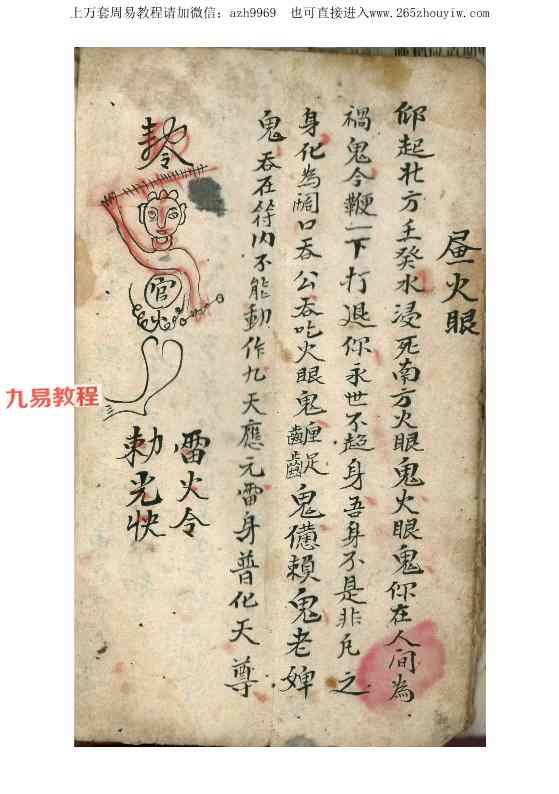 上万套周易教程请加微信：azh9969　也可直接进入www.265zhouyiw.com
火眼
仰起北方壬癸水浸死南方火眼鬼火眼鬼你在人间為
禍鬼今鞭一下打退你永世不超身吾身不是非凡之
身化為濶口吞公吞吃火眼鬼鬼賴鬼老婢
鬼吞在符内不能動作九天應元雷身普化天尊
官火
雷火令
勅光快
九易教程